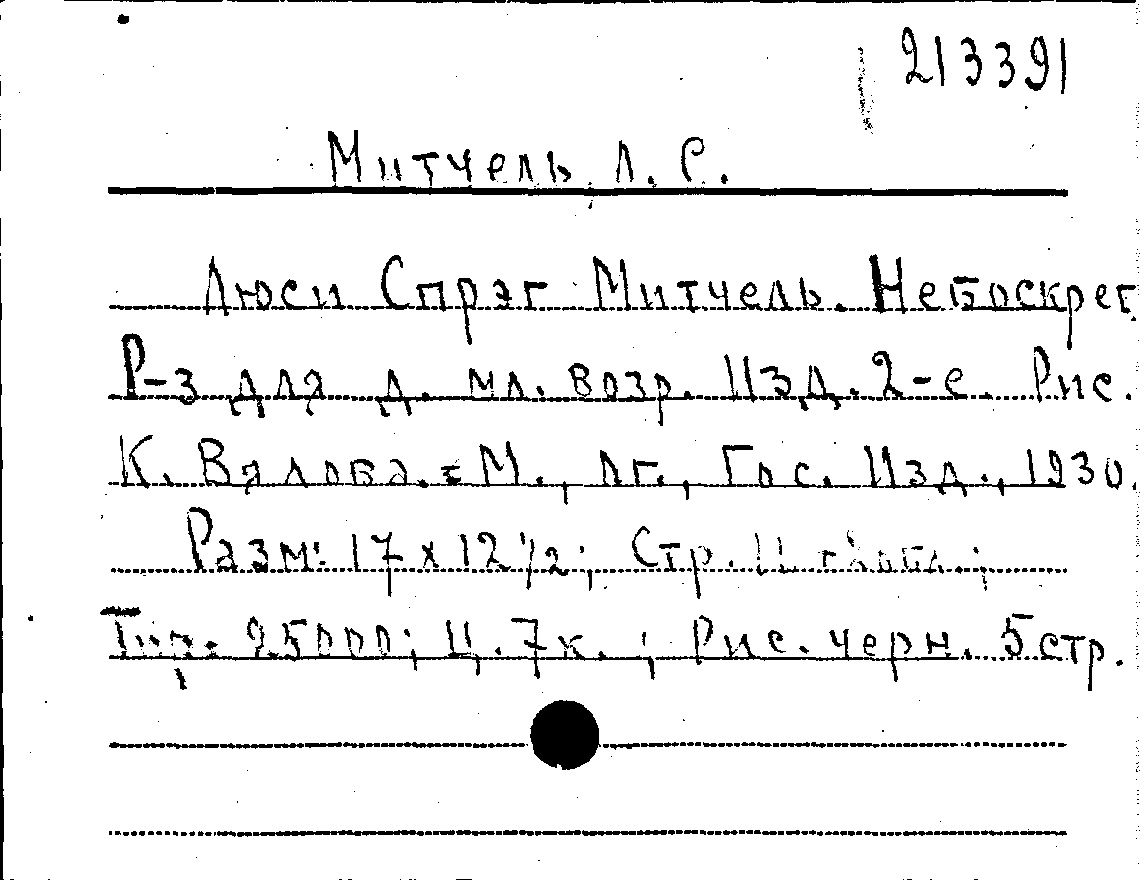 213391
Митчель, Л. С.
Люси Спрэг Митчель. Небоскреб
Р-з для д. мл. возр. Изд. 2-е. Рис.
К. Вялова. = М., Лг., Гос. Изд., 1930.
Разм: 17 х 12 1/2; Стр. 11
Тир. 25000; Ц. 7 к. ; Рис. черн. 5 стр.